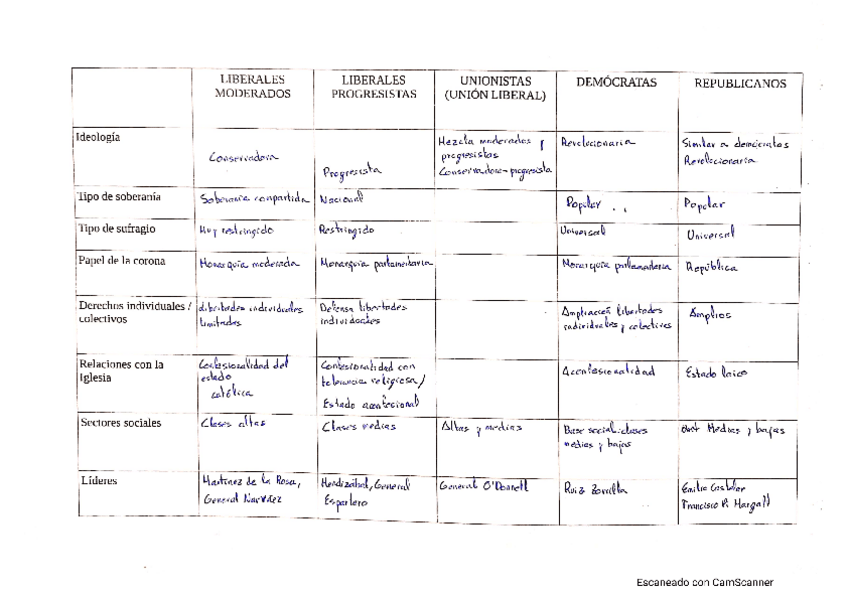 LIBERALES MODERADOS
LIBERALES PROGRESISTAS
UNIONISTAS (UNIÓN LIBERAL)
DEMÓCRATAS
REPUBLICANOS
Ideología
Conservadora
Progresista
Mezcla moderados y
progresistas
Conservadora-progresista
Revolucionaria
Similar a demócratas
Revolucionaria
Tipo de soberanía
Soberanía compartida
Nacional
Popular
Popular
Tipo de sufragio
Muy restringido
Restringido
Universal
Universal
Papel de la corona
Monarquía moderada
Monarquía parlamentaria
Monarquía parlamentaria
República
Derechos individuales /
colectivos
libertades individuales
limitadas
Defensa libertades
individuales
Ampliación libertades
individuales y colectivas
Amplios
Relaciones con la
Iglesia
Confesionalidad del
estado
católica
Confesionalidad con
tolerancia religiosa /
Estado aconfesional
Aconfesionalidad
Estado laico
Sectores sociales
Clases altas
Clases medias
Altas y medias
Base social: clases
medias y bajas
Medias y bajas
Líderes
Martínez de la Rosa,
General Narváez
Mendizábal, General
Espartero
General O'Donell
Ruiz Zorrilla
Emilio Castelar
Francisco Pi Margall
Escaneado con CamScanner